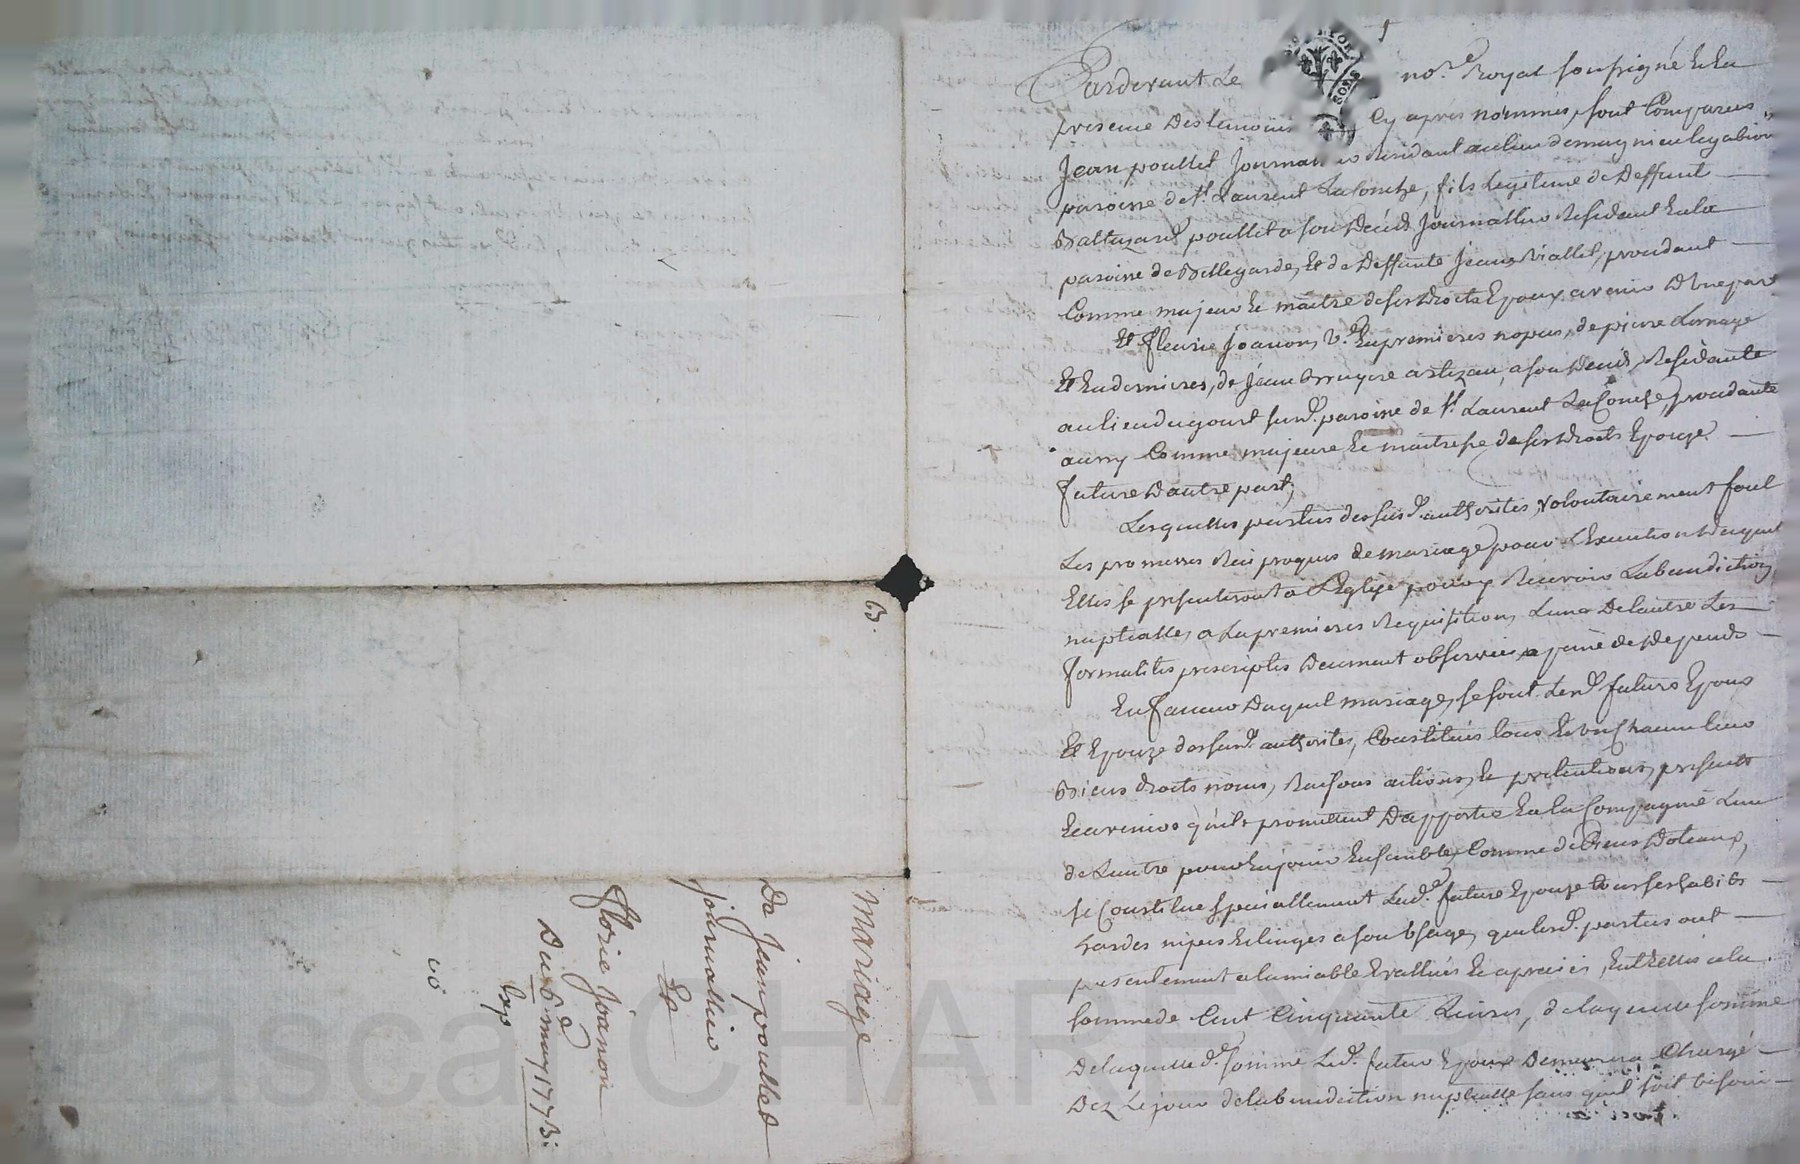 Pardevant Le no.re Royal soussigné Et En
presence Des temoins Cy apres nommés, sont Comparus
Jean poullet Journallier Residant au lieu de
paroisse de St. Laurent La Conche, fils Legitime de Deffunt
Baltazard poullet a son Decéd Journallier Residant En la
paroisse de Bellegarde, Et de Deffunte Jeanne Viallet, procedant
Comme majeur Et maitre de ses Droits Epoux avenir D'une part
Et fleurie Joanon, V.e En premieres nopces, de pierre
Et En dernieres, de Jean Bruyere artizan, a son Decéd, Residante
au lieu du gourt susd. paroisse de St. Laurent La Conche, procedante
aussy Comme majeure Et maitresse de ses Droits Epouze
future D'autre part,
Lesquelles parties des susd. authorités, volontairement font
Les promesses Reciproques de mariage, pour L'Execution Duquel
Elles se presenteront a L'Eglize, pour y Recevoir La benediction
nuptialle, a La premieres Requisition, L'une De L'autre Les
formalités prescriptes Deument observées, a peine de Depends
En faveur Duquel mariage, se sont Lesd. futurs Epoux
Et Epouze des susd. authorités, Constitués tous Et Un Chacun leur
Biens droits noms, Raisons actions, Et pretentions, presents
Et avenirs qu'ils promettent D'apporter En la Compagnie L'un
de L'autre pour En jouir Ensemble, Comme de Biens Doteaux,
se Constitue speciallement Lad.e future Epouze tous ses habits
hardes nipes Et linges a son Usage, que lesd. parties ont
presentement a lamiable Evallués Et apreciés, Entr'Elles a la
somme de Cent Cinquante Livres, de laquelle somme
De laquelle d.e somme Led. futur Epoux Demeurera Chargé
Dez Le jour de la benediction nuptialle sans qu'il soit besoin
B.
Mariage
De Jean poullet
journallier
Et
Florie Joanon
Du 6.e may 1773.
Exp
Pascal CHAREYRON